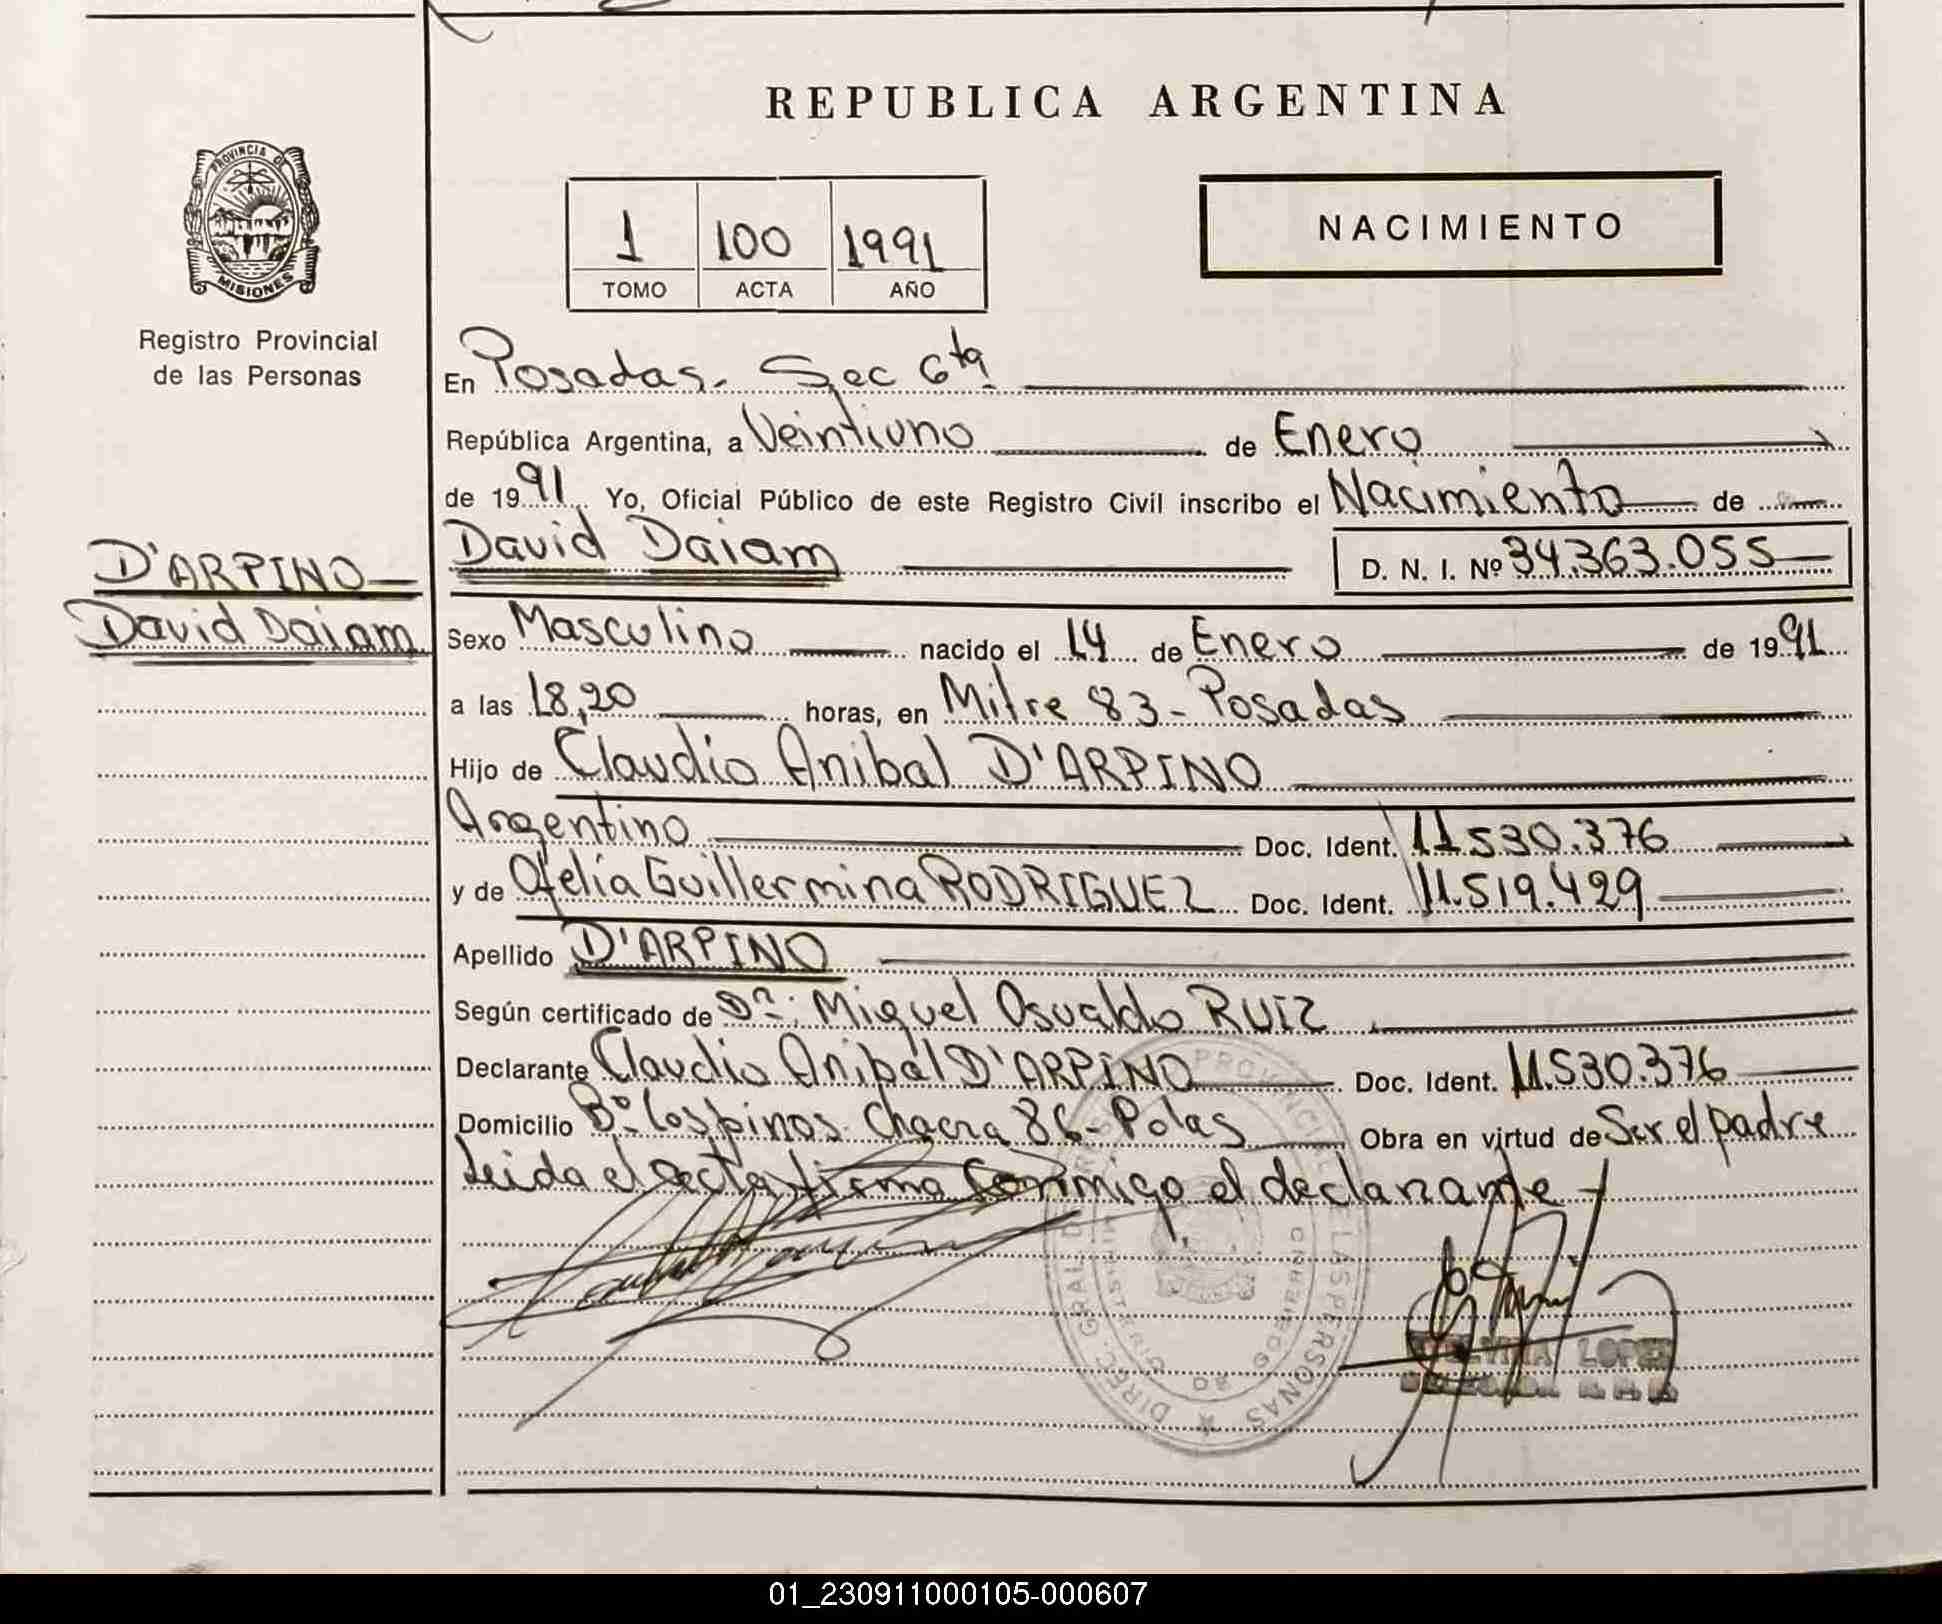 REPUBLICA ARGENTINA
PROVINCIA DE
MISIONES
Registro Provincial
de las Personas
1 100 1991
TOMO ACTA AÑO
NACIMIENTO
En Posadas. Sec 6ta
República Argentina, a Veintiuno de Enero
de 1991 Yo, Oficial Público de este Registro Civil inscribo el Nacimiento de
D'ARPINO
David Daiam
David Daiam D. N. I. Nº 34.363.055
Sexo Masculino nacido el 14 de Enero de 1991
a las 18,20 horas, en Mitre 83 - Posadas
Hijo de Claudio Anibal D'ARPINO
Argentino Doc. Ident. 11.530.376
y de Ofelia Guillermina RODRIGUEZ Doc. Ident. 11.519.429
Apellido D'ARPINO
Según certificado de Dr: Miguel Osvaldo RUIZ
Declarante Claudio Anibal D'ARPINO Doc. Ident. 11.530.376
Domicilio Bº Los pinos Chacra 86 - Pdas Obra en virtud de Ser el padre
Leida el acta firma conmigo el declarante
DIREC. GRAL. DE REG. PROVINCIAL DE LAS PERSONAS
MINISTERIO DE GOBIERNO
LOPEZ
01_230911000105-000607